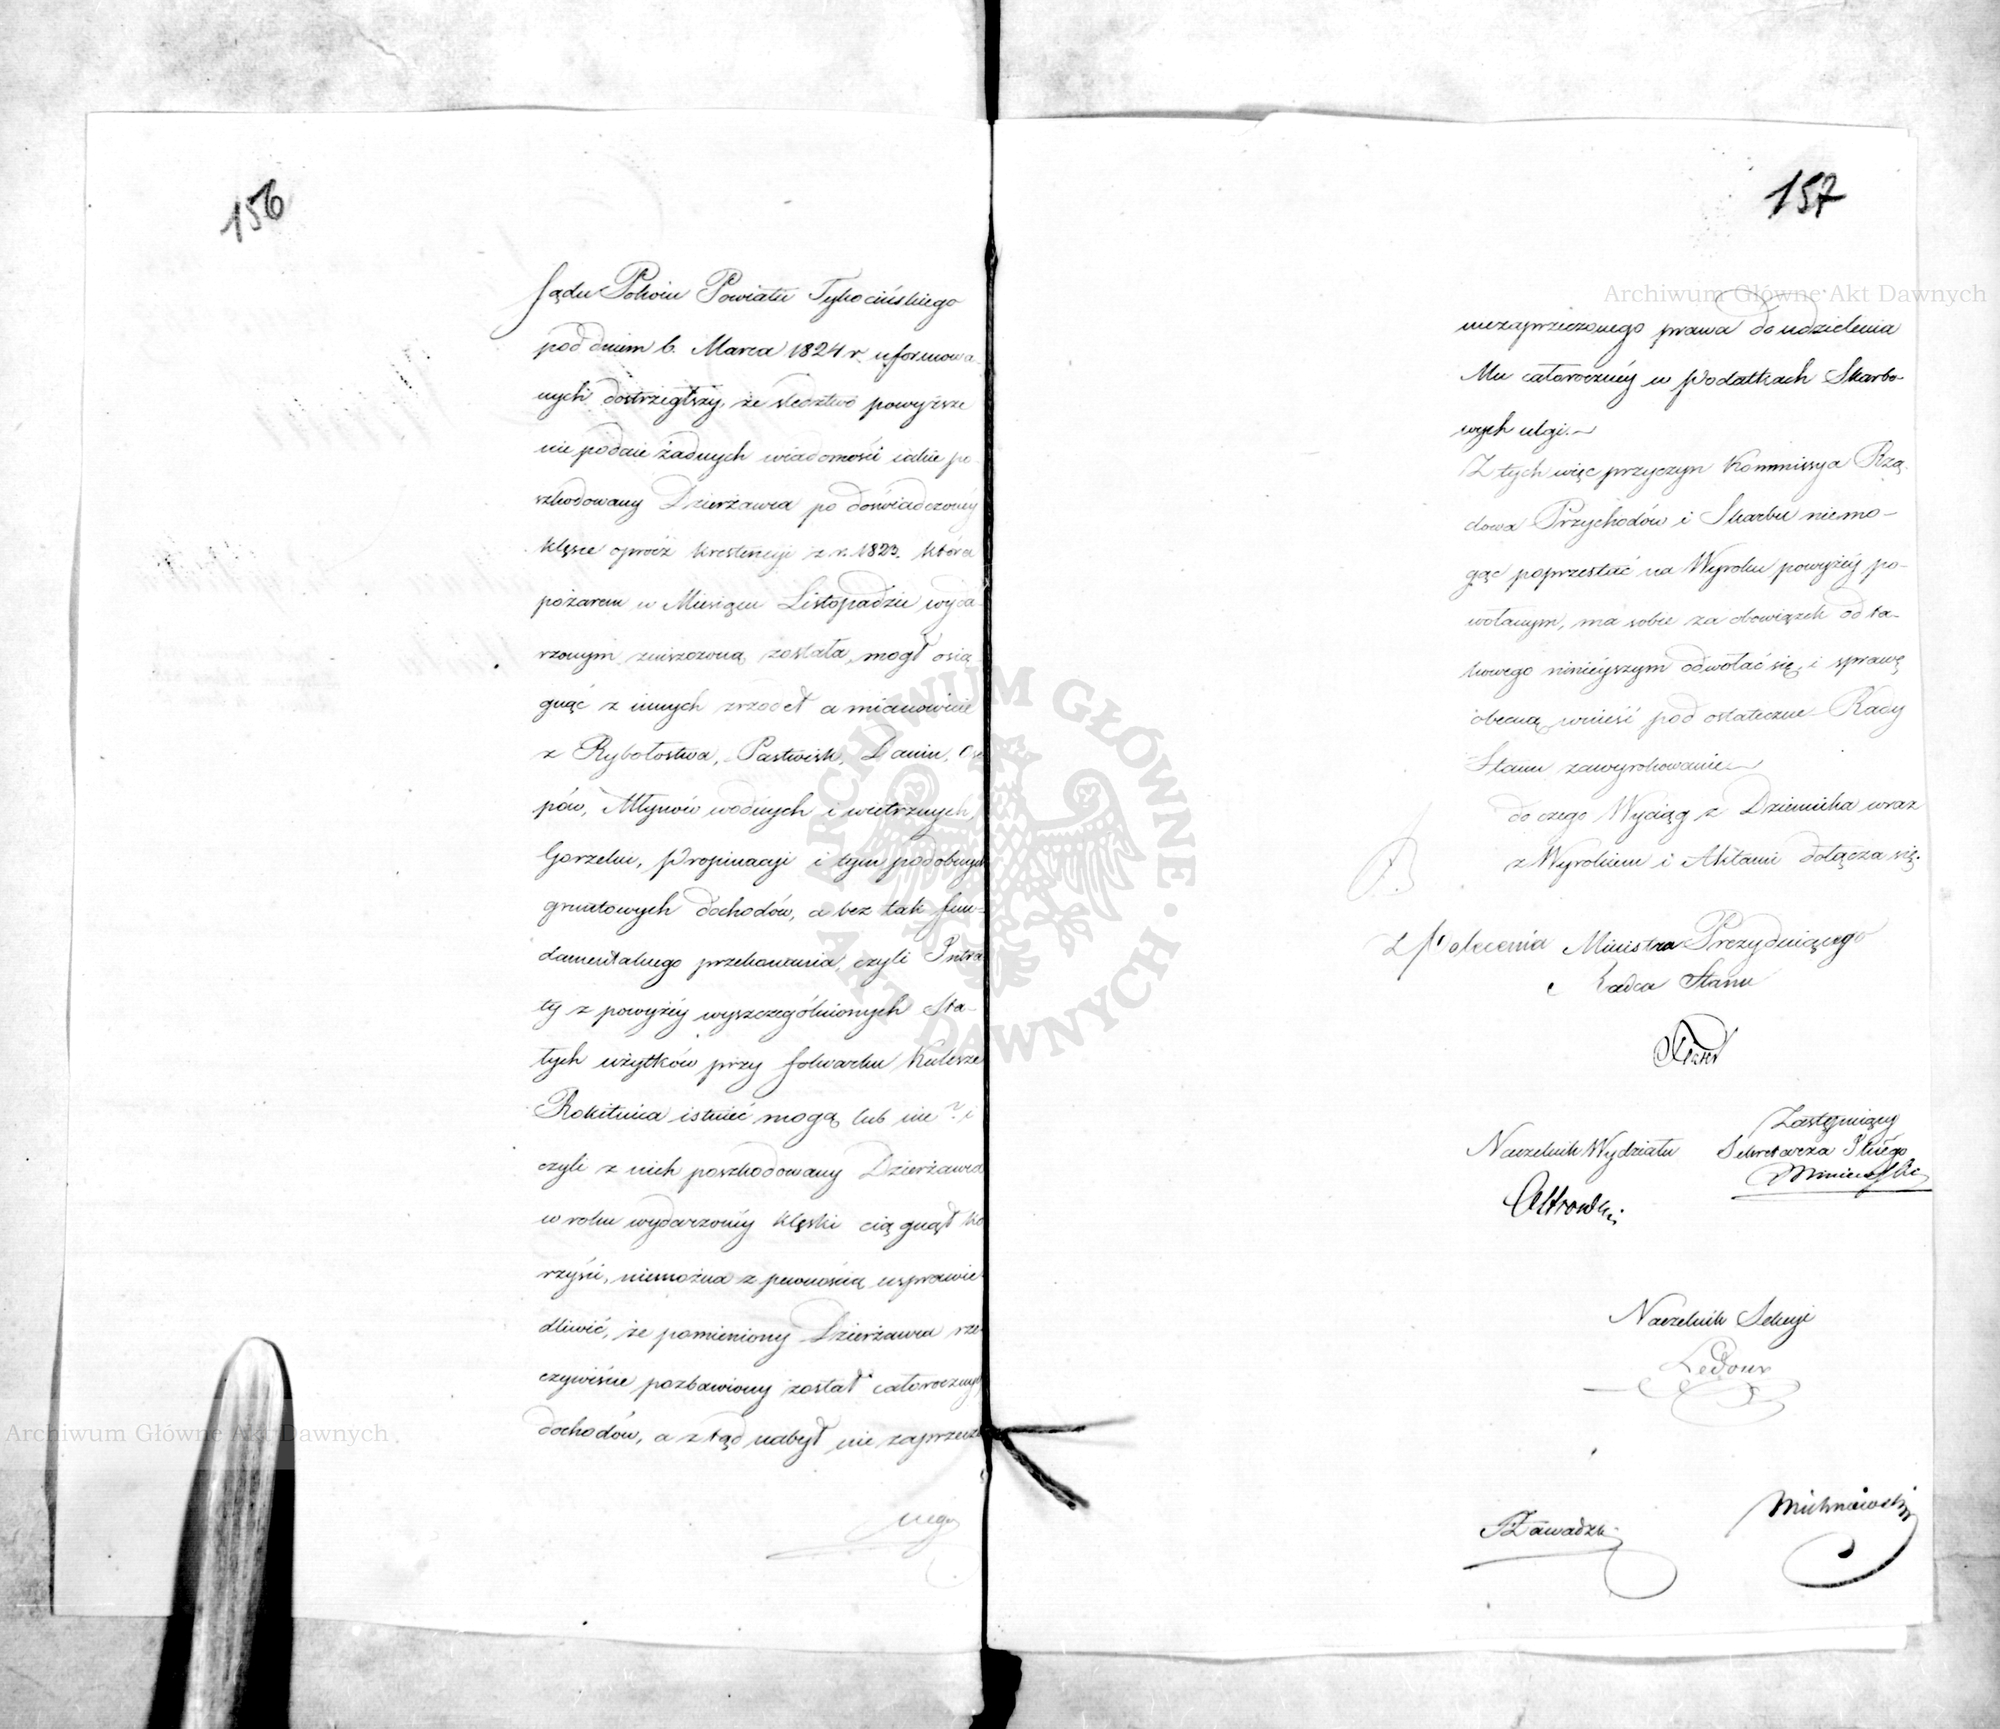 156
Sądu Pokoiu Powiatu Tykocińskiego
pod dniem 6. Marca 1824 r. uformowa-
nych dostrzegłszy, że śledztwo powyższe
nie podaie żadnych wiadomości iakie po-
szkodowany Dzierżawca po doświadczonéy
klęsce oprócz krestencyi z r. 1823. która
pożarem w Miesiącu Listopadzie wyda-
rzonym zniszczoną została, mogł osią-
gnąć z innych zrzodeł a mianowicie
z Rybołostwa, Pastwisk, Danin, Ose
pów, Młynów wodnych i wietrznych,
Gorzelni, Propinacyi i tym podobnych
gruntowych dochodów, a bez tak fun-
damentalnego przekonania, czyli Intra
ty z powyżéy wyszczególnionych sta-
łych użytków przy folwarku Kulesze
Rokitnica istnieć mogą lub nie? i
czyli z nich poszkodowany Dzierżawca
w roku wydarzonéy klęski ciągnął ko
rzyści, niemożna z pewnością usprawie-
dliwić, że pomieniony Dzierżawca rze-
czywiście pozbawiony został całorocznych
dochodów, a ztąd nabył nie zaprzeczo
nego
157
niezaprzeczonego prawa do udzielenia
Mu całorocznéy w Podatkach Skarbo-
wych ulgi.
Z tych więc przyczyn Kommissya Rzą-
dowa Przychodów i Skarbu niemo-
gąc poprzestać na Wyroku powyżéy po-
wołanym, ma sobie za obowiązek od ta-
kowego ninieyszym odwołać się, i sprawę
obecną wnieść pod ostateczne Rady
Stanu zawyrokowanie
do czego Wyciąg z Dziennika wraz
z Wyrokiem i Aktami dołącza się.
z Polecenia Ministra Prezyduiącego
Radca Stanu
Zastępuiący
Naczelnik Wydziału Sekretarza Jlnego
Naczelnik Sekcyi
Ledoux
Zawadzki
Michniewski
Archiwum Główne Akt Dawnych
Archiwum Główne Akt Dawnych
ARCHIWUM GŁÓWNE
AKT DAWNYCH